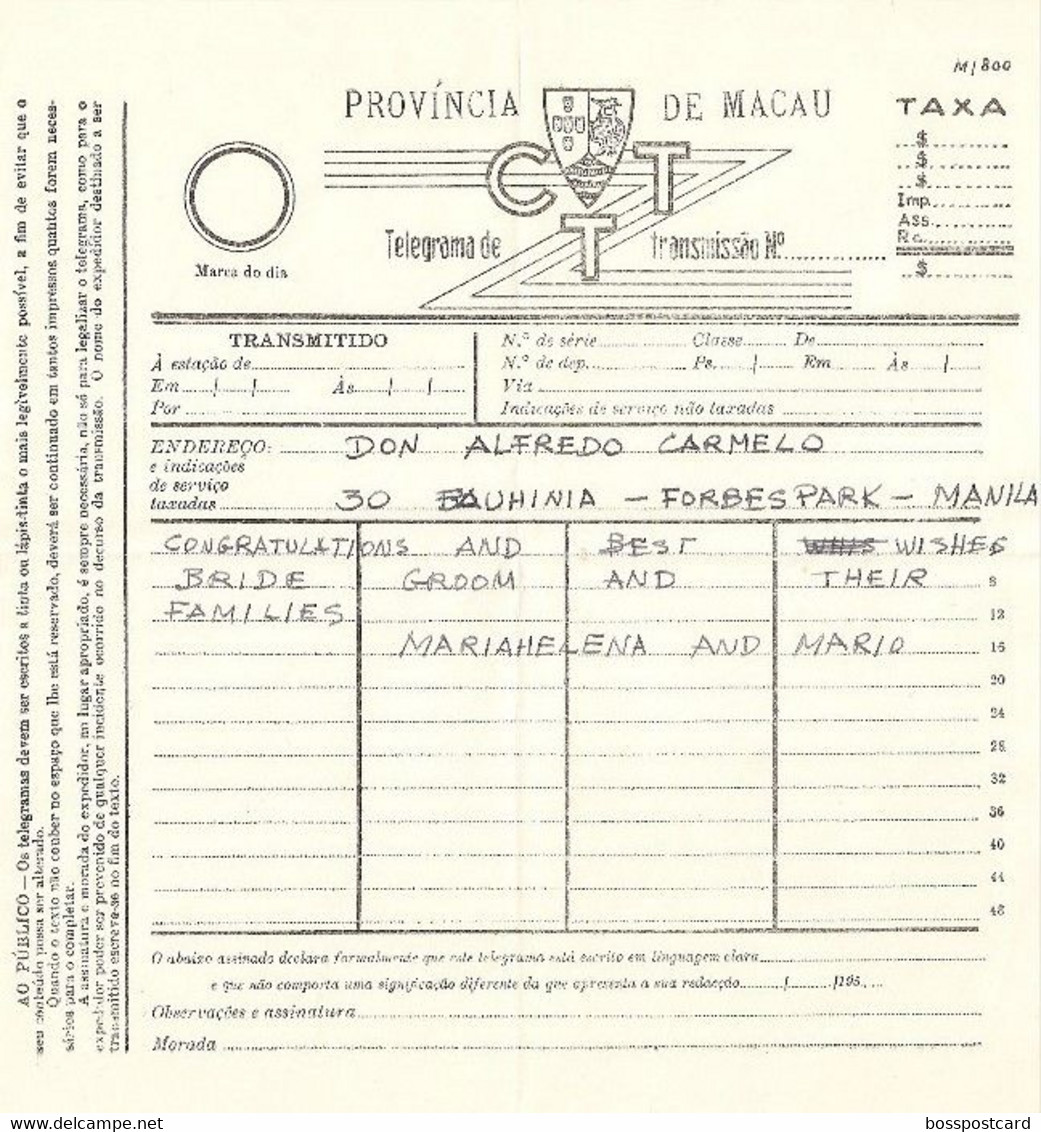 M/800
PROVÍNCIA DE MACAU
TAXA
$
$
$
Imp.
Ass.
Rc.
$
C T T
Marca do dia
Telegrama de
transmissão Nº
TRANSMITIDO
À estação de
Em / / Às / /
Por
N.º de série Classe De
N.º de dep. Ps. / Em Às /
Via
Indicações de serviço não taxadas
ENDEREÇO: DON ALFREDO CARMELO
e indicações
de serviço
taxadas 30 BAUHINIA - FORBES PARK - MANILA
CONGRATULATIONS AND BEST WISHES
BRIDE GROOM AND THEIR 8
FAMILIES 12
MARIAHELENA AND MARIO 16
20
24
28
32
36
40
44
48
O abaixo assinado declara formalmente que este telegrama está escrito em linguagem clara
e que não comporta uma significação diferente da que apresenta a sua redacção / /195
Observações e assinatura
Morada
AO PÚBLICO — Os telegramas devem ser escritos a tinta ou lápis-tinta o mais legìvelmente possível, a fim de evitar que o
seu conteúdo possa ser alterado.
Quando o texto não couber no espaço que lhe está reservado, deverá ser continuado em tantos impressos quantos forem neces-
sários para o completar.
A assinatura e morada do expedidor, no lugar apropriado, é sempre necessária, não só para legalizar o telegrama, como para o
expedidor poder ser prevenido de qualquer incidente ocorrido no decurso da transmissão. O nome do expedidor destinado a ser
transmitido escreve-se no fim do texto.
delcampe.net
bosspostcard